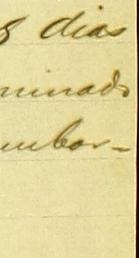 8 dias
minado
mbar=